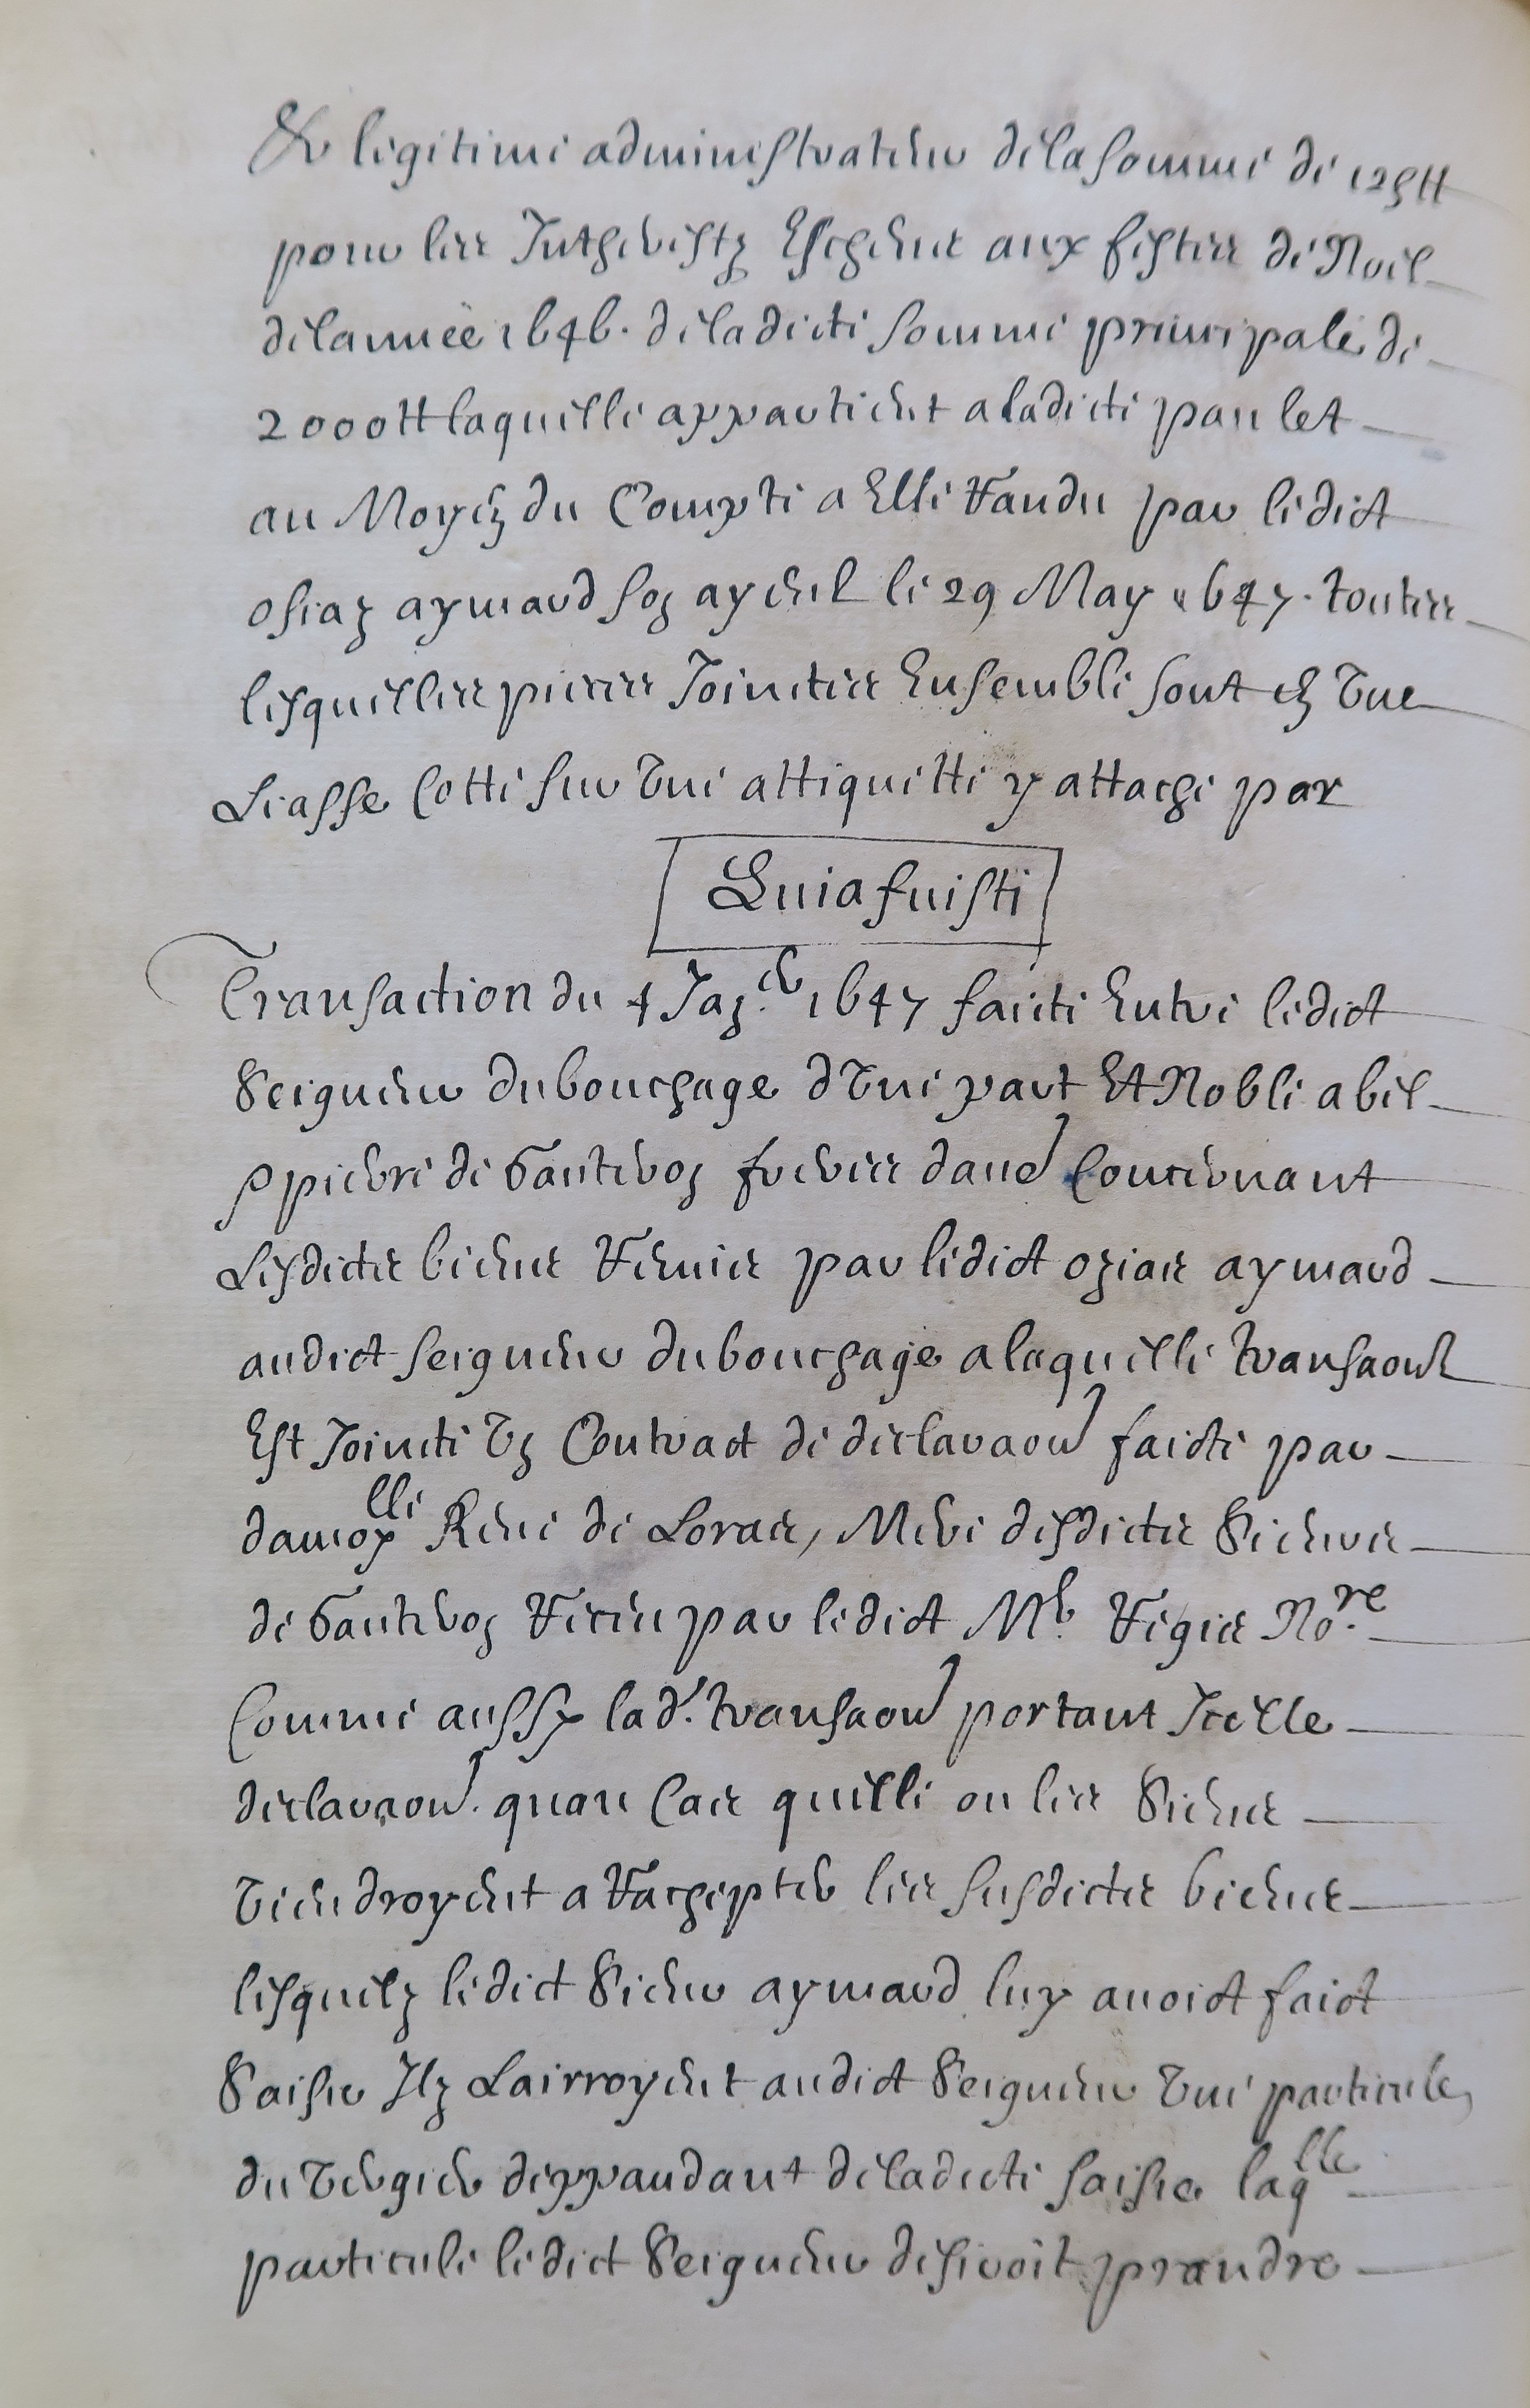 Et legitime administrateur de la somme de 125 tt
pour les Interestz Escheus aux festes de Noel
de lannee 1646. de ladicte somme principale de
2000 tt laquelle appartient a ladicte paulet
au Moyen du Compte a Elle randu par ledict
osiaz aymard son ayeul le 29 May 1647. toutes
lesquelles pieces Joinctes Ensemble sont en vne
Liasse Cotté sur vne attiquitte y attache par
Quia fuisti
Transaction du 4 Jan.er 1647 faicte Entre ledict
Seigneur du bouchage dvne part Et Noble abel
pierre de Gauteron freres dane Concernant
Lesdictes biens Remis par ledict oziaz aymard
audict seigneur du bouchage a laquelle transaon
Est Joincte vn Contract de declaraon faicte par
damoylle Rene de Loras, Mere desdictes Sieurs
de Gauteron Receu par ledict Me. Regis No.re
Comme aussy lad. transaon portant Icelle
declaraon. quau Cas quelle ou les Siens
viendroyent a Rachepter les susdictes biens
lesquelz ledict Sieur aymard luy auoict faict
Saisir Ilz Lairroyent audict Seigneur vne particule
du vergier deppandant de ladicte saisie laqlle
particule ledict Seigneur desiroit prandre